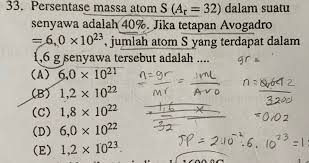 33. Persentase massa atom S (Aᵣ = 32) dalam suatu
senyawa adalah 40%. Jika tetapan Avogadro
= 6,0 × 10²³, jumlah atom S yang terdapat dalam
1,6 g senyawa tersebut adalah ....
(A) 6,0 × 10²¹
(B) 1,2 × 10²²
(C) 1,8 × 10²²
(D) 6,0 × 10²²
(E) 1,2 × 10²³.
gr =
n = gr/Mr = jml/Avo
1,6/32 x
n =
3200
= 0,02
JP = 2·10⁻²·6·10²³ = 1